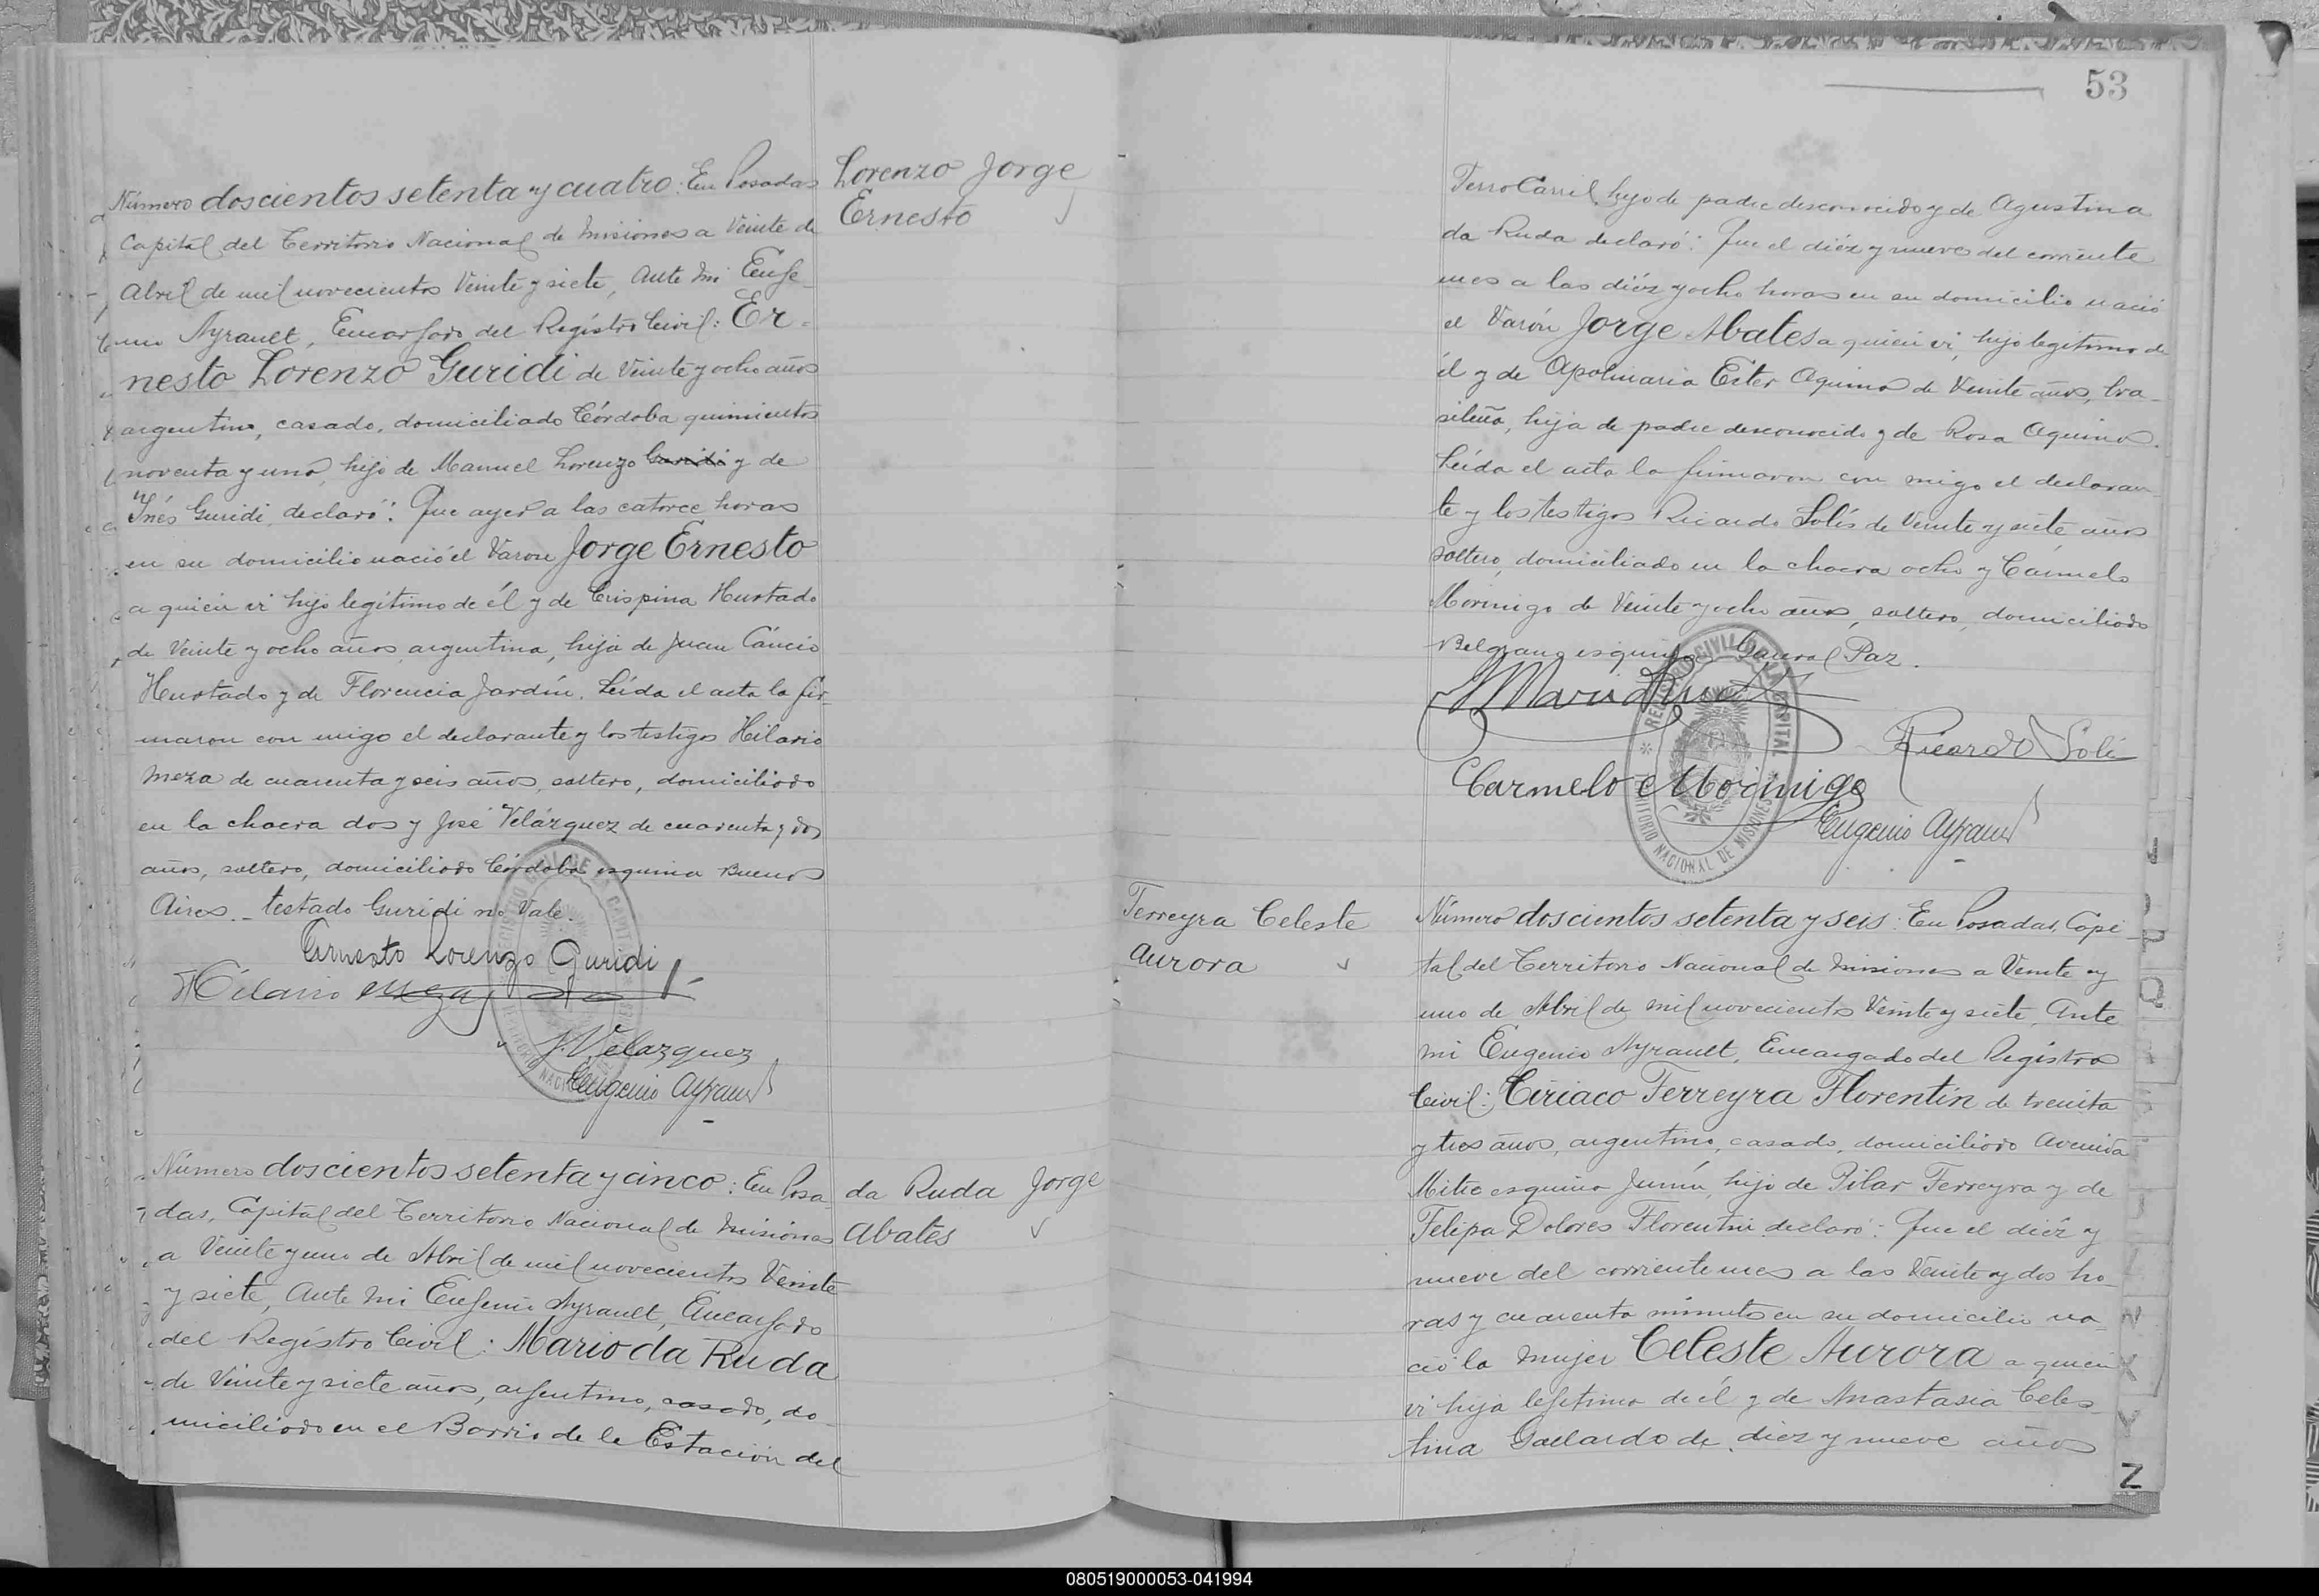 Número doscientos setenta y cuatro: En Posadas
Capital del Territorio Nacional de Misiones a Veinte de
Abril de mil novecientos Veinte y siete, Ante mi Euge-
nio Ayrault, Encargado del Registro Civil: Er-
nesto Lorenzo Guridi de Veinte y ocho años
argentino, casado, domiciliado Córdoba quinientos
noventa y uno, hijo de Manuel Lorenzo Guridi y de
Inés Guridi, declaró: Que ayer a las catorce horas
en su domicilio nació el Varon Jorge Ernesto
a quien vi hijo legítimo de él y de Crispina Hurtado
de Veinte y ocho años, argentina, hija de Juan Cáncio
Hurtado y de Florencia Jardín. Leída el acta la fir-
maron con migo el declarante y los testigos Hilario
Meza de cuarenta y seis años, soltero, domiciliado
en la chacra dos y José Velázquez de cuarenta y dos
años, soltero, domiciliado Córdoba esquina Buenos
Aires._ testado Guridi no Vale.
Ernesto Lorenzo Guridi
Hilario Meza
J. Velazquez
Eugenio Ayrault
Lorenzo Jorge
Ernesto
Número doscientos setenta y cinco: En Posa-
das, Capital del Territorio Nacional de Misiones
a Veinte y uno de Abril de mil novecientos Veinte
y siete, Ante mi Eugenio Ayrault, Encargado
del Registro Civil: Mario da Ruda
de Veinte y siete años, argentino, casado, do-
miciliado en el Barrio de la Estación del
da Ruda Jorge
Abates
53
Ferro Carril, hijo de padre desconocido y de Agustina
da Ruda declaró: Que el diéz y nueve del corriente
mes a las diéz y ocho horas en su domicilio nació
el Varón Jorge Abates a quien vi, hijo legítimo de
él y de Apolinaria Ester Aquino de Veinte años, bra-
sileña, hija de padre desconocido y de Rosa Aquino.
Leída el acta la firmaron con migo el declaran-
te y los testigos Ricardo Solís de Veinte y siete años
soltero, domiciliado en la chacra ocho y Cármelo
Morinigo de Veinte y ocho años, soltero, domiciliado
Belgrano esquina General Paz.
Ricardo Solis
Carmelo Morinigo
Eugenio Ayrault
REGISTRO CIVIL DE LA CAPITAL
TERRITORIO NACIONAL DE MISIONES
Ferreyra Celeste
Aurora
Número doscientos setenta y seis: En Posadas, Capi-
tal del Territorio Nacional de Misiones a Veinte y
uno de Abril de mil novecientos Veinte y siete, Ante
mi Eugenio Ayrault, Encargado del Registro
Civil: Ciriaco Ferreyra Florentín de treinta
y tres años, argentino, casado, domiciliado Avenida
Mitre esquina Junín, hijo de Pilar Ferreyra y de
Felipa Dolores Florentin declaró: Que el diéz y
nueve del corriente mes a las Veinte y dos ho-
ras y cuarenta minutos en su domicilio na-
ció la mujer Celeste Aurora a quien
vi hija legítima de él y de Anastasia Celes-
tina Gallardo de diez y nueve años
Z
080519000053-041994